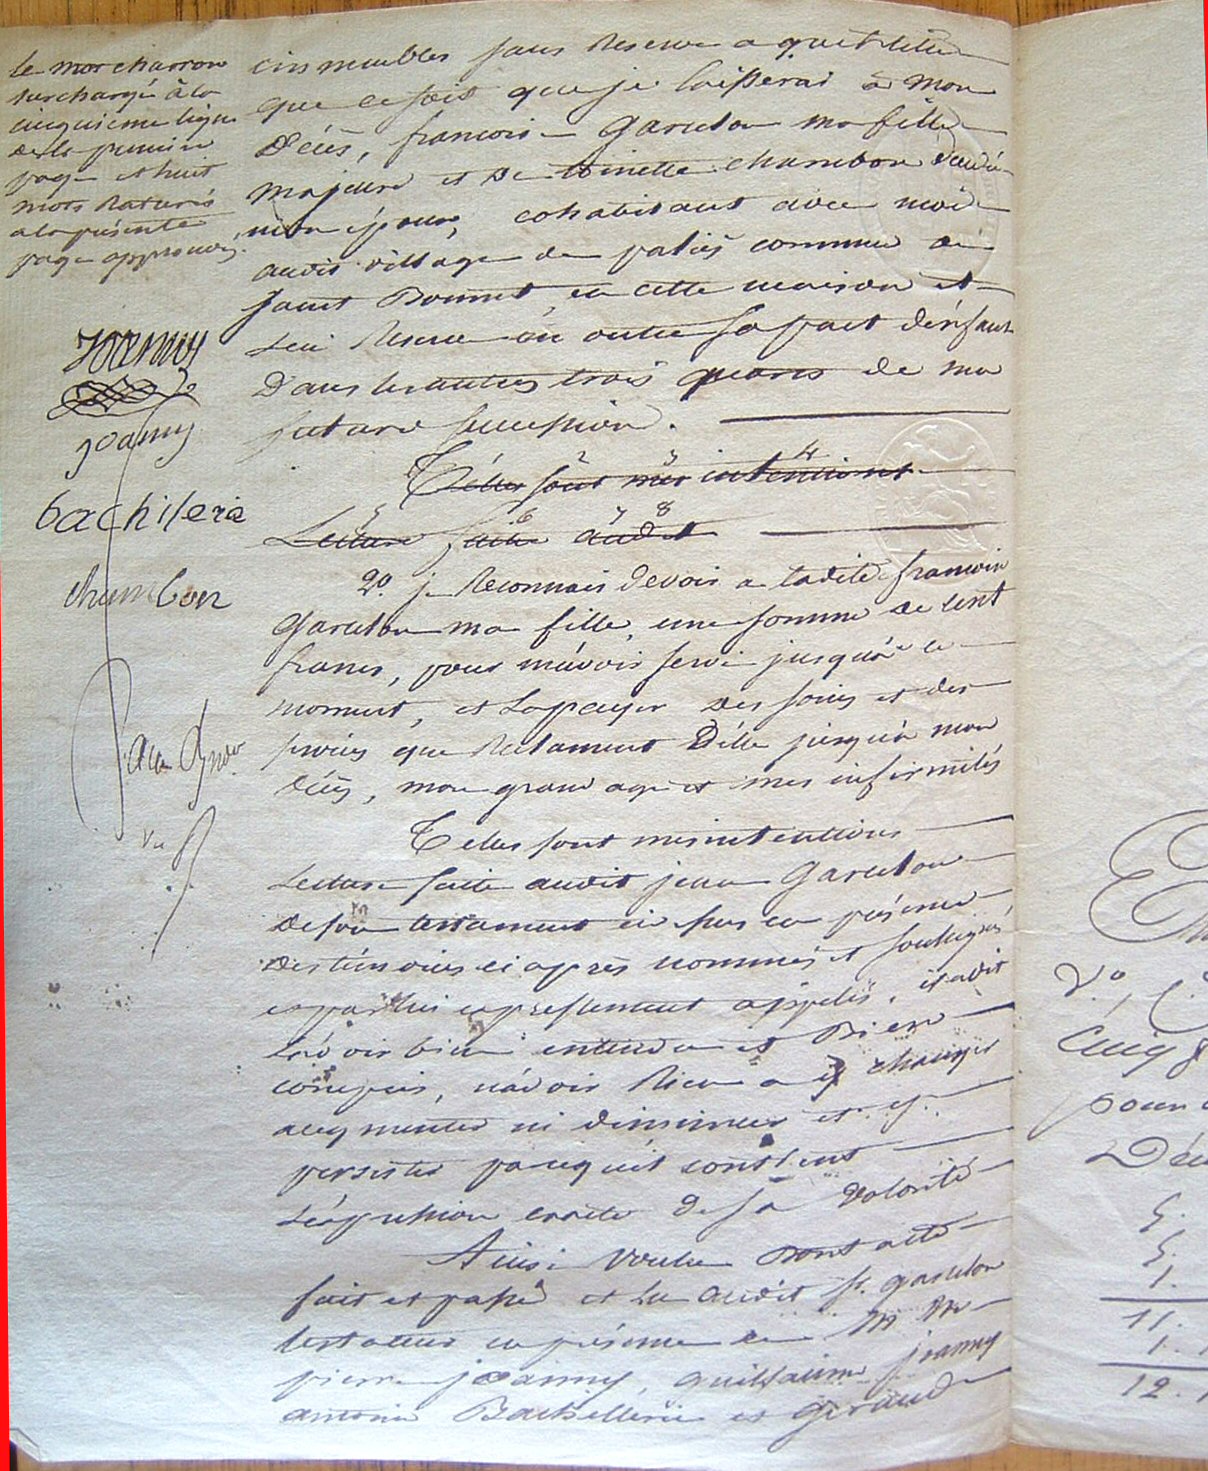 le mot charron
surchargé à la
cinquieme ligne
de la premiere
page et huit
mots raturés
a la présente
page approuvés
Joanny
joanny
bachilerie
chambon
cin meubles sans Reserve a quel titre
que ce soit que je laisserai à mon
décés, francoise Garulon ma fille
majeure et de toinette chambon
mon épouse, cohabitant avec moi
audit village de paliés commune de
saint Bonnet, en cette maison et
lui Reserve en outre sa part d'enfant
Dans les autres trois quarts de ma
future succession.
2 3 4
Télles sont mes intentions
5 6 7 8
Lecture faite audit
2o. je Reconnais devoir a ladite francoise
Garulon ma fille, une somme de cent
francs, pour m'avoir servi jusqu'à ce
moment, et la payer des soins et des
services que Reclament D'elle jusqu'à mon
décés, mon grand age et mes infirmités
Telles sont mes intentions
Lecture faite audit jean Garulon
de son testament ci sus en présence
des témoins ci après nommés et soussignés
et par lui expressement appelés, il a dit
l'avoir bien entendu et Bien
compris, n'avoir Rien a y changer
augmenter ni diminuer et y
persister parcequ'il contient
l'expression exacte de sa volonté
Ainsi voulu Dont acte
fait et passé et lu audit sr. garulon
testateur en présence de M M
pierre joanny, guillaume joanny
antoine Bachellerie et Giraud
V.o
pour
Déc
5.
5.
1.
11.
1.
12.